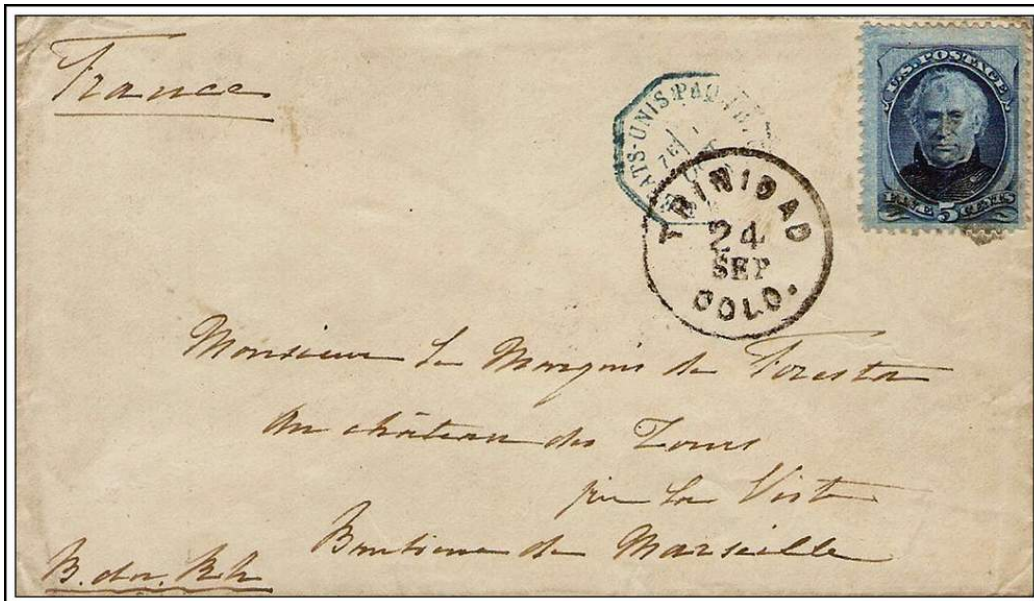 France
U.S. POSTAGE
FIVE 5 CENTS
TRINIDAD
24
SEP
COLO.
Monsieur le Marquis de Foresta
au château des Tours
par La Viste
Banlieue de Marseille
B. du Rh.